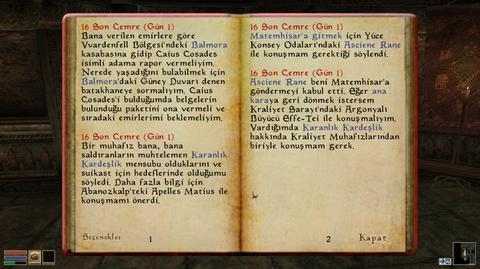 16 Son Cemre (Gün 1)
Bana verilen emirlere göre
Vvardenfell Bölgesi'ndeki Balmora
kasabasına gidip Caius Cosades
isimli adama rapor vermeliyim.
Nerede yaşadığını bulabilmek için
Balmora'daki Güney Duvarı denen
batakhaneye sormalıyım. Caius
Cosades'i bulduğumda belgelerin
bulunduğu paketini ona vermeli ve
sıradaki emirlerimi beklemeliyim.
16 Son Cemre (Gün 1)
Bir muhafız bana, bana
saldıranların muhtemelen Karanlık
Kardeşlik mensubu olduklarını ve
suikast için hedeflerinde olduğumu
söyledi. Daha fazla bilgi için
Abanozkalp'teki Apelles Matius ile
konuşmamı önerdi.
Seçenekler
1
16 Son Cemre (Gün 1)
Matemhisar'a gitmek için Yüce
Konsey Odaları'ndaki Asciene Rane
ile konuşmam gerektiği söylendi.
16 Son Cemre (Gün 1)
Asciene Rane beni Matemhisar'a
göndermeyi kabul etti. Eğer ana
karaya geri dönmek istersem
Kraliyet Sarayı'ndaki Argonyalı
Büyücü Effe-Tei ile konuşmalıyım.
Vardığımda Karanlık Kardeşlik
hakkında Kraliyet Muhafızlarından
biriyle konuşmam gerek.
2
Kapat